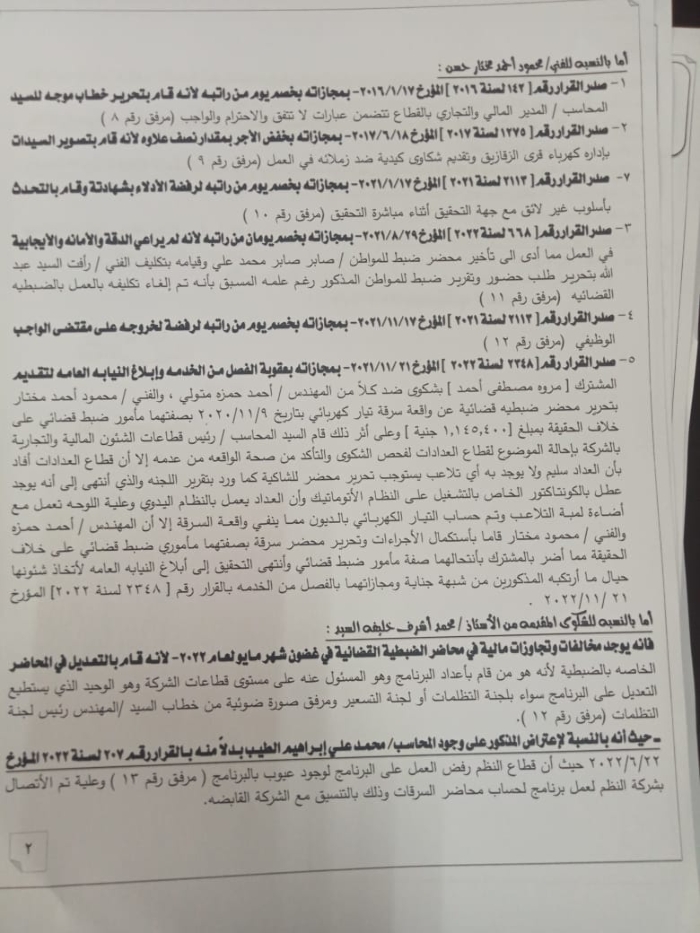 أما بالنسبه للفني/ محمود أحمد مختار حسن :
١- صدر القرار رقم [ ١٤٢ لسنة ٢٠١٦ ] المؤرخ ٢٠١٦/١/١٧- بمجازاته بخصم يوم من راتبه لأنه قام بتحرير خطاب موجه للسيد
المحاسب / المدير المالي والتجاري بالقطاع تتضمن عبارات لا تتفق والاحترام والواجب (مرفق رقم ٨ )
٢- صدر القرار رقم [ ١٢٧٥ لسنة ٢٠١٧ ] المؤرخ ٢٠١٧/٦/١٨- بمجازاته بخفض الأجر بمقدار نصف علاوه لأنه قام بتصوير السيدات
بإداره كهرباء قرى الزقازيق وتقديم شكاوى كيدية ضد زملائه في العمل (مرفق رقم ٩ )
٧- صدر القرار رقم [ ٢١١٣ لسنة ٢٠٢١ ] المؤرخ ٢٠٢١/١/١٧- بمجازاته بخصم يوم من راتبه لرفضة الأدلاء بشهادتة وقام بالتحدث
بأسلوب غير لائق مع جهة التحقيق أثناء مباشرة التحقيق (مرفق رقم ١٠ )
٣- صدر القرار رقم [ ٦٦٨ لسنة ٢٠٢٢ ] المؤرخ ٢٠٢١/٨/٢٩- بمجازاته بخصم يومان من راتبه لأنه لم يراعي الدقة والأمانه والأيجابية
في العمل مما أدى الى تأخير محضر ضبط للمواطن / صابر صابر محمد علي وقيامه بتكليف الفني / رأفت السيد عبد
الله بتحرير طلب حضور وتقرير ضبط للمواطن المذكور رغم علمه المسبق بأنه تم إلغاء تكليفه بالعمل بالضبطيه
القضائيه (مرفق رقم ١١ )
٤- صدر القرار رقم [ ٢١١٣ لسنة ٢٠٢١ ] المؤرخ ٢٠٢١/١١/١٧- بمجازاته بخصم يوم من راتبه لرفضة لخروجه على مقتضى الواجب
الوظيفي (مرفق رقم ١٢ )
٥- صدر القرار رقم [ ٢٣٤٨ لسنة ٢٠٢٢ ] المؤرخ ٢٠٢١/١١/٢١- بمجازاته بعقوبة الفصل من الخدمه وإبلاغ النيابه العامه لتقديم
المشترك [ مروه مصطفى أحمد ] بشكوى ضد كلاً من المهندس / أحمد حمزه متولي ، والفني / محمود أحمد مختار
بتحرير محضر ضبطيه قضائية عن واقعة سرقة تيار كهربائي بتاريخ ٢٠٢٠/١١/٩ بصفتهما مأمور ضبط قضائي على
خلاف الحقيقة بمبلغ [ ١,١٤٥,٤٠٠ جنية ] وعلى أثر ذلك قام السيد المحاسب / رئيس قطاعات الشئون المالية والتجارية
بالشركة بإحالة الموضوع لقطاع العدادات لفحص الشكوى والتأكد من صحة الواقعه من عدمه إلا أن قطاع العدادات أفاد
بأن العداد سليم ولا يوجد به أي تلاعب يستوجب تحرير محضر للشاكية كما ورد بتقرير اللجنه والذي أنتهى إلى أنه يوجد
عطل بالكونتاكتور الخاص بالتشغيل على النظام الأتوماتيك وأن العداد يعمل بالنظام اليدوي وعلية اللوحه تعمل مع
أضاءة لمبة التلاعب وتم حساب التيار الكهربائي بالديون مما ينفي واقعة السرقة إلا أن المهندس / أحمد حمزه
والفني / محمود مختار قاما بأستكمال الأجراءات وتحرير محضر سرقة بصفتهما مأموري ضبط قضائي على خلاف
الحقيقة مما أضر بالمشترك بأنتحالهما صفة مأمور ضبط قضائي وأنتهى التحقيق إلى أبلاغ النيابه العامه لأتخاذ شئونها
حيال ما أرتكبه المذكورين من شبهة جناية ومجازاتهما بالفصل من الخدمه بالقرار رقم [ ٢٣٤٨ لسنة ٢٠٢٢] المؤرخ
٢٠٢٢/١١/٢١ .
أما بالنسبه للشكوى المقدمه من الأستاذ / محمد أشرف خليفه السيد :
فأنه يوجد مخالفات وتجاوزات مالية في محاضر الضبطية القضائية في غضون شهر مايو لعام ٢٠٢٢- لأنه قام بالتعديل في المحاضر
الخاصه بالضبطية لأنه هو من قام بأعداد البرنامج وهو المسئول عنه على مستوى قطاعات الشركة وهو الوحيد الذي يستطيع
التعديل على البرنامج سواء بلجنة التظلمات أو لجنة التسعير ومرفق صورة ضوئية من خطاب السيد /المهندس رئيس لجنة
التظلمات (مرفق رقم ١٢ ).
- حيث أنه بالنسبة لإعتراض المذكور على وجود المحاسب/ محمد علي إبراهيم الطيب بدلاً منه بالقرار رقم ٢٠٧ لسنة ٢٠٢٢ المؤرخ
٢٠٢٢/٦/٢٢ حيث أن قطاع النظم رفض العمل على البرنامج لوجود عيوب بالبرنامج ( مرفق رقم ١٣ ) وعلية تم الأتصال
بشركة النظم لعمل برنامج لحساب محاضر السرقات وذلك بالتنسيق مع الشركة القابضه.
٢